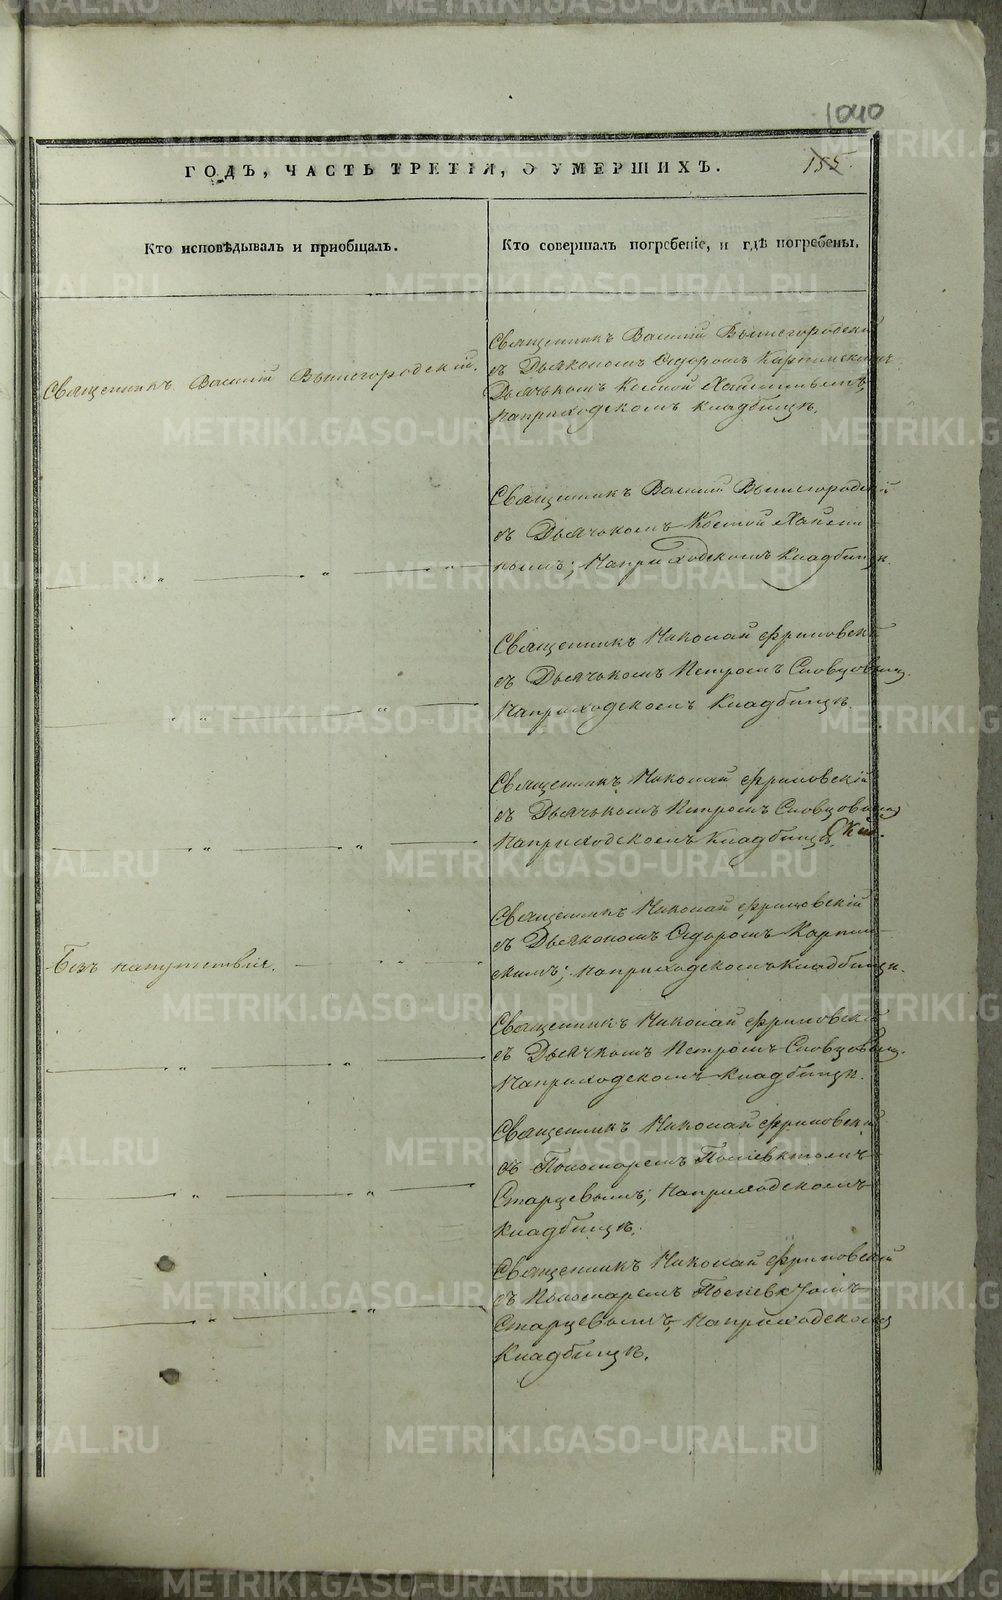 METRIKI.GASO-URAL.RU
1040
ГОДЪ, ЧАСТЬ ТРЕТІЯ, О УМЕРШИХЪ.
155.
Кто исповѣдывалъ и пріобщалъ.
Кто совершалъ погребеніе, и гдѣ погребены.
Священникъ Василій Вышегородскій.
Священникъ Василій Вышегородскій
съ Дьякономъ Сидоромъ Карпинскимъ
Дьячкомъ Костой
Наприходскомъ кладбищѣ.
Священникъ Василій Вышегородскій
съ Дьячкомъ Костой
Наприходскомъ Кладбищѣ.
Священникъ Николай Фриловскій
съ Дьячькомъ Петромъ Словцовымъ
Наприходскомъ Кладбищѣ.
Священникъ Николай Фриловскій
съ Дьячькомъ Петромъ Словцовымъ
Наприходскомъ Кладбищѣ.
Безъ напутствія.
Священникъ Николай Фриловскій
съ Дьякономъ Сидоромъ Карпин-
скимъ; наприходскомъ Кладбищѣ.
Священникъ Николай Фриловскій
съ Дьячкомъ Петромъ Словцовымъ
Наприходскомъ Кладбищѣ.
Священникъ Николай Фриловскій
съ Пономаремъ Поліевктомъ
Старцевымъ; Наприходскомъ
Кладбищѣ.
Священникъ Николай Фриловскій
съ Пономаремъ Поліевктомъ
Старцевымъ, Наприходскомъ
Кладбищѣ.